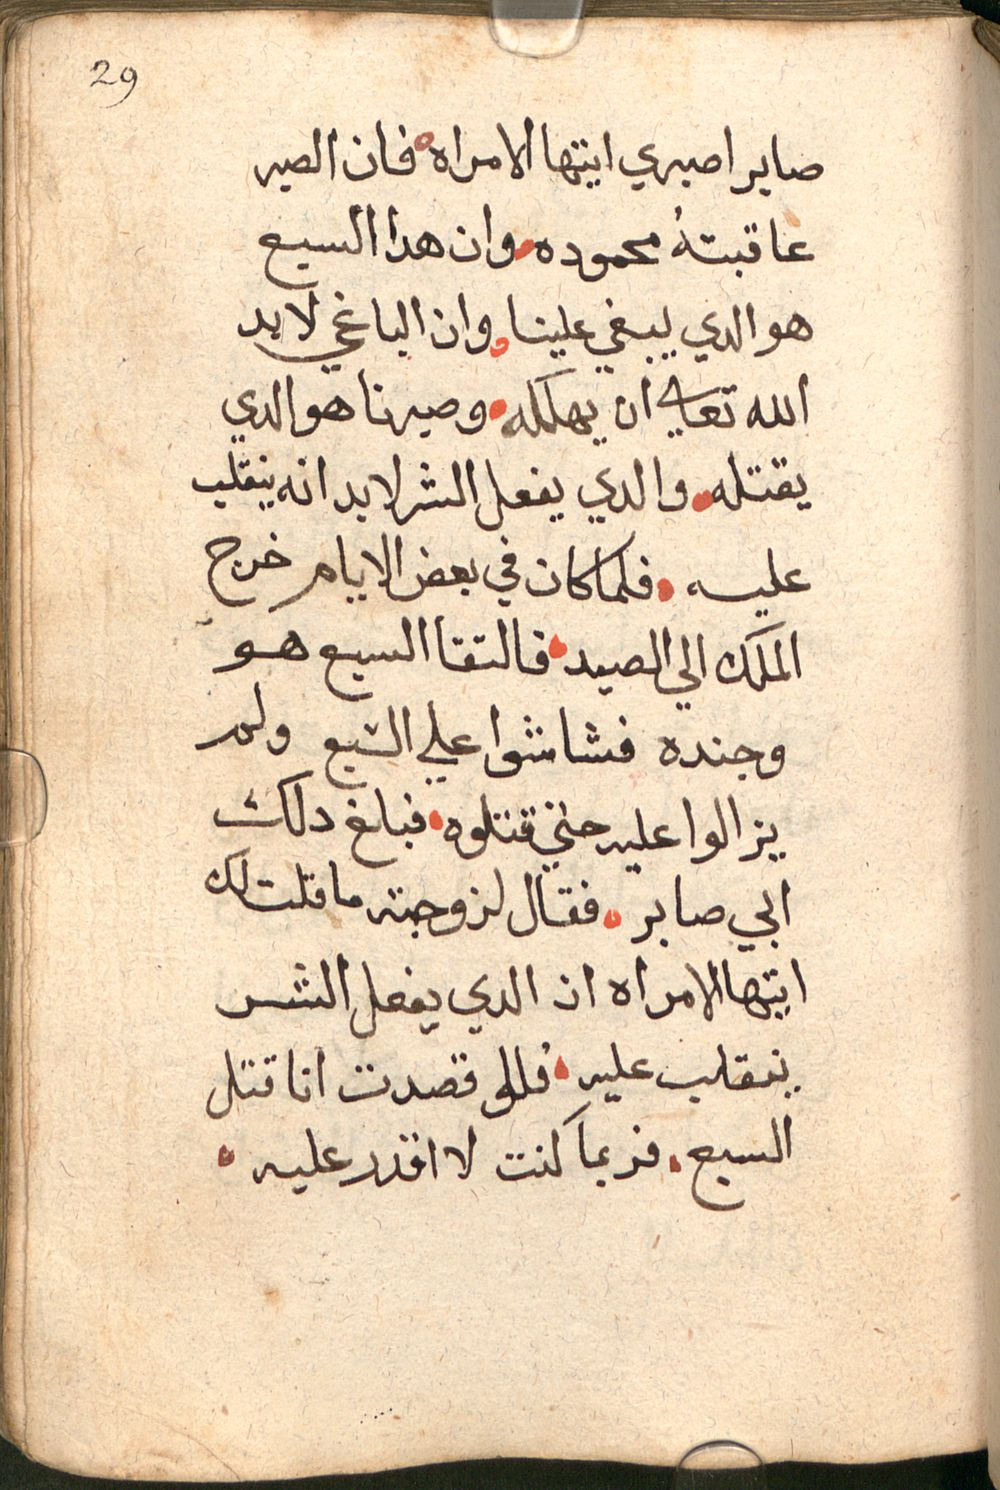 29
صابر اصبري ايتها الامراه فان الصبر
عاقبته محموده وان هدا السبع
هو الدي يبغي علينا وان الباغي لابد
الله تعالي ان يهلكه وصبرنا هو الدي
يقتله والدي يفعل الشر لابد انه ينقلب
عليه فلما كان في بعض الايام خرج
الملك الي الصيد فالتقا السبع هو
وجنده فشاشوا علي السبع ولم
يزالوا عليه حتي قتلوه فبلغ دلك
ابي صابر فقال لزوجته ما قلت لك
ايتها الامراه ان الدي يفعل الشر
ينقلب عليه فلو قصدت انا قتل
السبع فربما كنت لا اقدر عليه